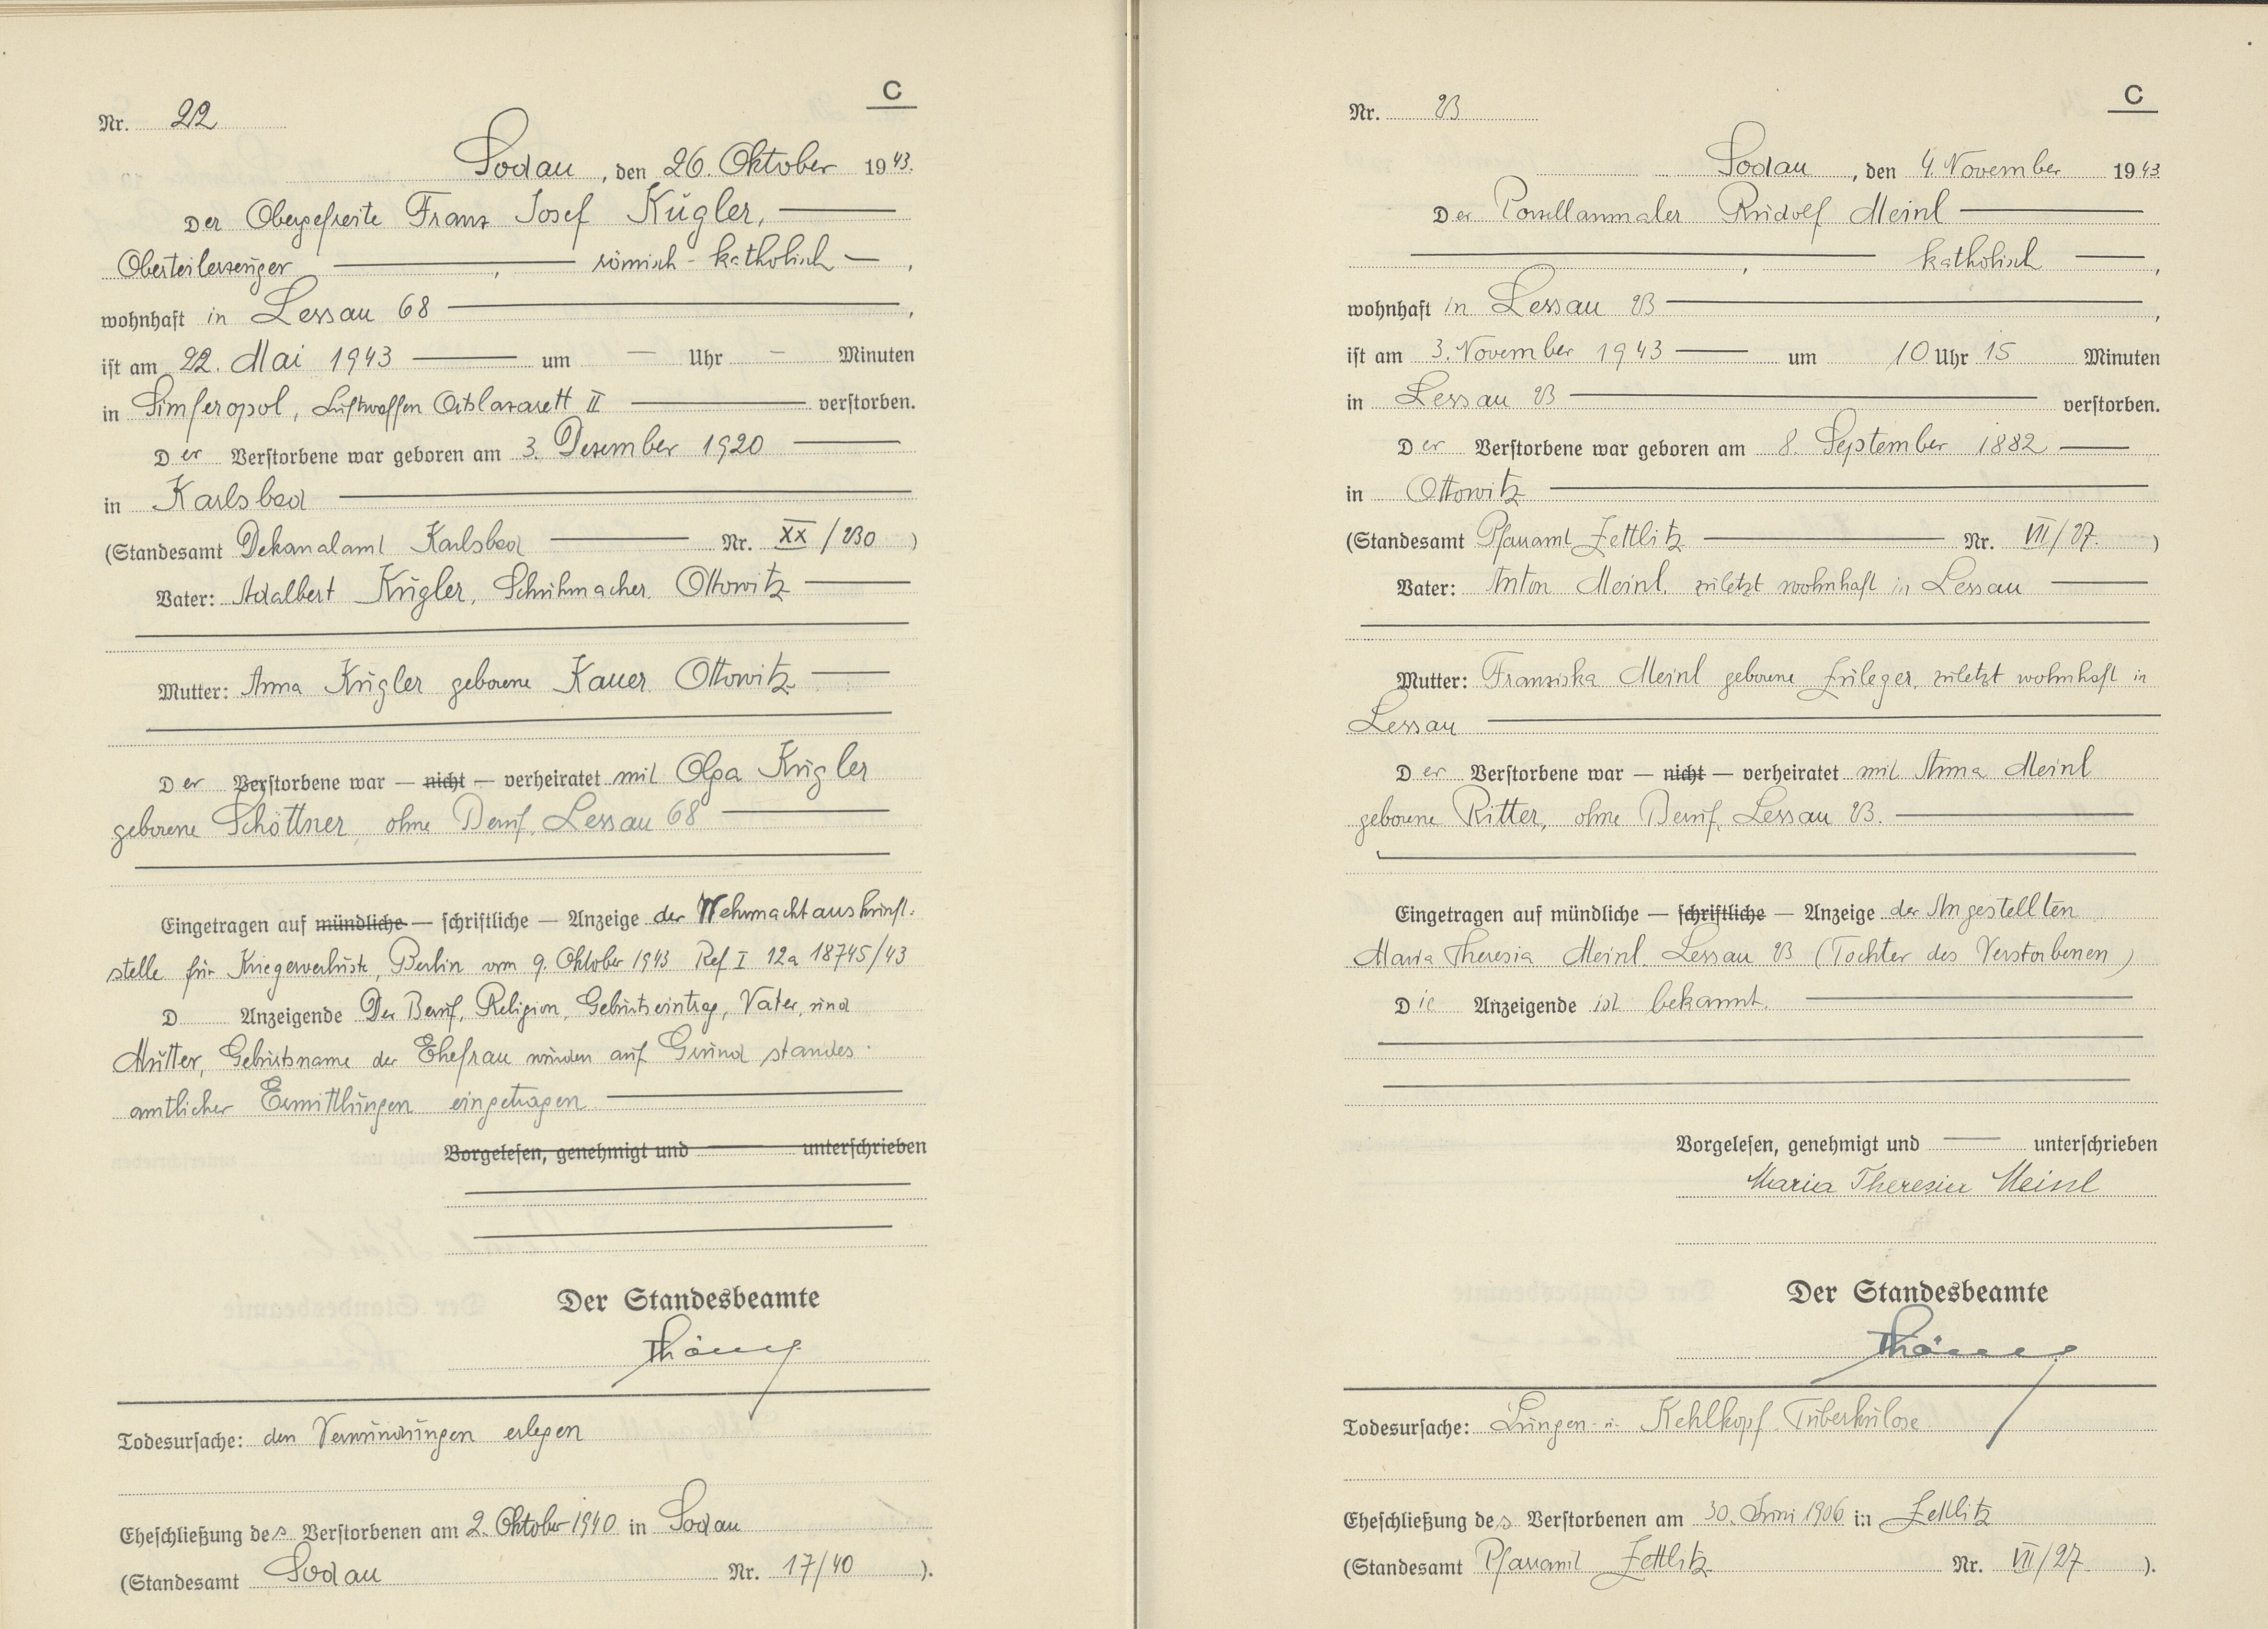 C
Nr. 22
Sodau, den 26. Oktober 1943.
Der Obergefreite Franz Josef Kugler,
Oberteilerzeuger, römisch-katholisch,
wohnhaft in Lessau 68,
ist am 22. Mai 1943 um — Uhr — Minuten
in Simferopol, Luftwaffen Ortslazarett II verstorben.
Der Verstorbene war geboren am 3. Dezember 1920
in Karlsbad
(Standesamt Dekanalamt Karlsbad Nr. XX/230)
Vater: Adalbert Kugler, Schuhmacher. Ottowitz
Mutter: Anna Kugler geborene Kauer. Ottowitz
Der Verstorbene war — nicht — verheiratet mit Olga Kugler
geborene Schöttner, ohne Beruf, Lessau 68
Eingetragen auf mündliche — schriftliche — Anzeige der Wehrmachtauskunft-
stelle für Kriegerverluste, Berlin vom 9. Oktober 1943 Ref I 12a 18745/43
D Anzeigende Der Beruf, Religion, Geburtseintrag, Vater, und
Mutter, Geburtsname der Ehefrau wurden auf Grund standes-
amtlicher Ermittlungen eingetragen
Vorgelesen, genehmigt und unterschrieben
Der Standesbeamte
Todesursache: den Verwundungen erlegen
Eheschließung des Verstorbenen am 2. Oktober 1940 in Sodau
(Standesamt Sodau Nr. 17/40).
C
Nr. 23
Sodau, den 4. November 1943
Der Porzellanmaler Rudolf Meinl
, katholisch,
wohnhaft in Lessau 23,
ist am 3. November 1943 um 10 Uhr 15 Minuten
in Lessau 23 verstorben.
Der Verstorbene war geboren am 8. September 1882
in Ottowitz
(Standesamt Pfarramt Zettlitz Nr. VII/27.)
Vater: Anton Meinl. zuletzt wohnhaft in Lessau
Mutter: Franziska Meinl geborene Zuleger, zuletzt wohnhaft in
Lessau
Der Verstorbene war — nicht — verheiratet mit Anna Meinl
geborene Ritter, ohne Beruf, Lessau 23.
Eingetragen auf mündliche — schriftliche — Anzeige der Angestellten
Maria Theresia Meinl. Lessau 23 (Tochter des Verstorbenen)
Die Anzeigende ist bekannt.
Vorgelesen, genehmigt und — unterschrieben
Maria Theresia Meinl
Der Standesbeamte
Todesursache: Lungen- u. Kehlkopf-Tuberkulose
Eheschließung des Verstorbenen am 30. Juni 1906 in Zettlitz
(Standesamt Pfarramt Zettlitz Nr. VII/27.).